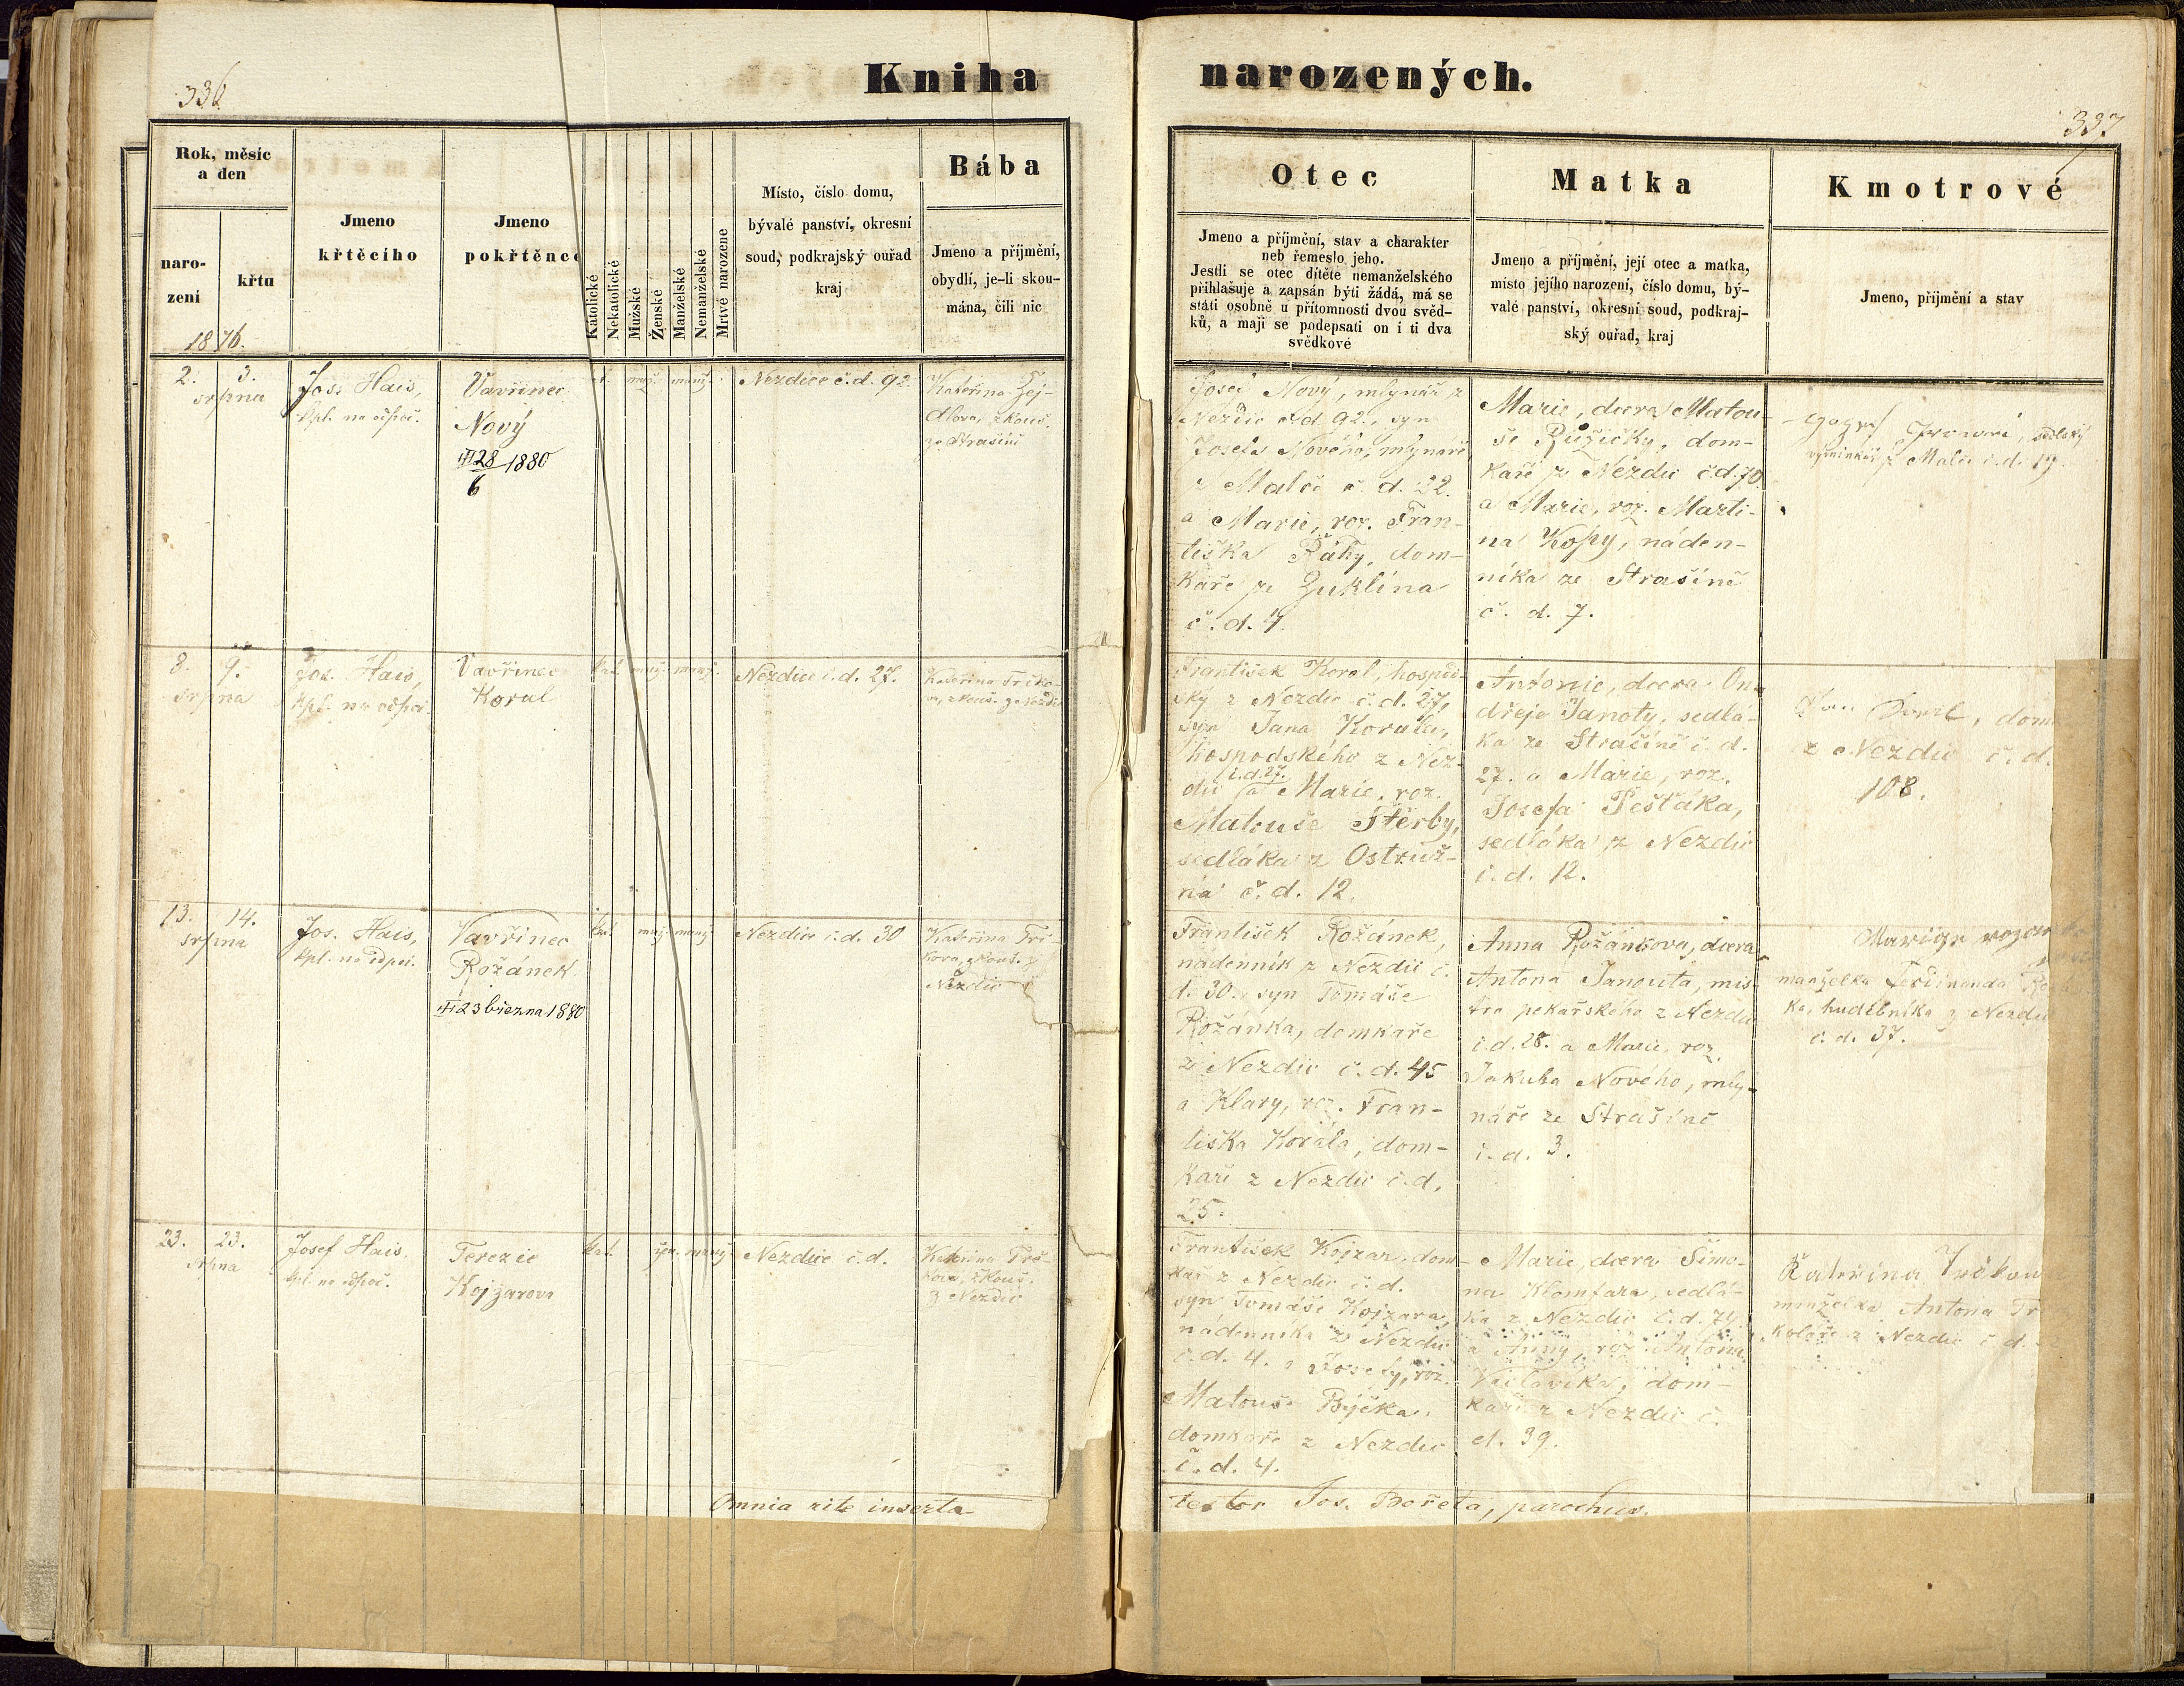 336
Kniha narozených.
337
Rok, měsíc
a den
naro-
zení
křtu
1876.
Jmeno
křtěcího
Jmeno
pokřtěnce
Katolické
Nekatolické
Mužské
Ženské
Manželské
Nemanželské
Mrtvé narozené
Místo, číslo domu,
bývalé panství, okresní
soud, podkrajský ouřad
kraj
Bába
Jmeno a příjmění,
obydlí, je-li skou-
mána, čili nic
Otec
Jmeno a příjmění, stav a charakter
neb řemeslo jeho.
Jestli se otec dítěte nemanželského
přihlašuje a zapsán býti žádá, má se
státi osobně u přítomnosti dvou svěd-
ků, a mají se podepsati on i ti dva
svědkové
Matka
Jmeno a příjmění, její otec a matka,
místo jejího narození, číslo domu, bý-
valé panství, okresní soud, podkraj-
ský ouřad, kraj
Kmotrové
Jmeno, příjmění a stav
2. 3.
srpna
Jos. Hais,
kpl. na odpoč.
Vavřinec
Nový
28/6 1880
muž. manž.
Nezdice č.d. 92.
Kateřina Zej-
dlova, zkouš.
ze Strašíně
Josef Nový, mlynář z
Nezdic č.d. 92., syn
Josefa Nového, mlynáře
z Malče č. d. 22.
a Marie, roz. Fran-
tiška Ráhy, dom-
káře ze Zuklína
č. d. 4.
Marie, dcera Matou-
še Růžičky, dom-
káře z Nezdic č.d. 70.
a Marie, roz. Marti-
na Kopy, náden-
níka ze Strašíně
č. d. 7.
výminkář z Malče č. d. 19.
8. 9.
srpna
Jos. Hais,
kpl. na odpoč.
Vavřinec
Koral
kat. muž. manž.
Nezdice č.d. 27.
František Koral, hospod-
ský z Nezdic č.d. 27.,
syn Jana Korala,
hospodského z Nez-
dic č.d. 27. a Marie, roz.
Matouše Štěrby,
sedláka z Ostruž-
na č. d. 12.
Antonie, dcera On-
dřeje Janoty, sedlá-
ka ze Strašíně č. d.
27. a Marie, roz.
Josefa Pešťáka,
sedláka z Nezdic
č. d. 12.
z Nezdic č. d.
108.
13. 14.
srpna
Jos. Hais,
kpl. na odpoč.
Vavřinec
Rožánek.
23 března 1880
kat. muž. manž.
Nezdice č.d. 30
Kateřina Trč-
kova, zkouš. z
Nezdic
František Rožánek,
nádenník z Nezdic č.
d. 30., syn Tomáše
Rožánka, domkáře
z Nezdic č. d. 45
a Klary, roz. Fran-
tiška Korála, dom-
káře z Nezdic č.d.
25.
Anna Rožánkova, dcera
Antona Janouta, mis-
tra pekařského z Nezdic
č.d. 28. a Marie, roz.
Jakuba Nového, mly-
náře ze Strašíně
č. d. 3.
manželka Ferdinanda
hudebníka z Nezdic
č. d. 37.
23. 23.
srpna
Josef Hais.
kpl. na odpoč.
Terezie
Kojzarova
kat. žen. manž.
Nezdice č.d.
Kateřina Trč-
kova, zkouš.
z Nezdic
František Kojzar, dom-
kář z Nezdic č. d.
syn Tomáše Kojzara,
nádenníka z Nezdic
č. d. 4. a Josefy, roz.
Matouše Býčka,
domkáře z Nezdic
č. d. 4.
Marie, dcera Šimo-
na Klomfara, sedlá-
ka z Nezdic č.d. 74.
a Anny, roz. Antona
Václavíka, dom-
káře z Nezdic č.
d. 39.
Kateřina Trčkova
manželka Antona
koláře z Nezdic č. d.
Omnia rite inserta
testor Jos. Bořeta, parochus.